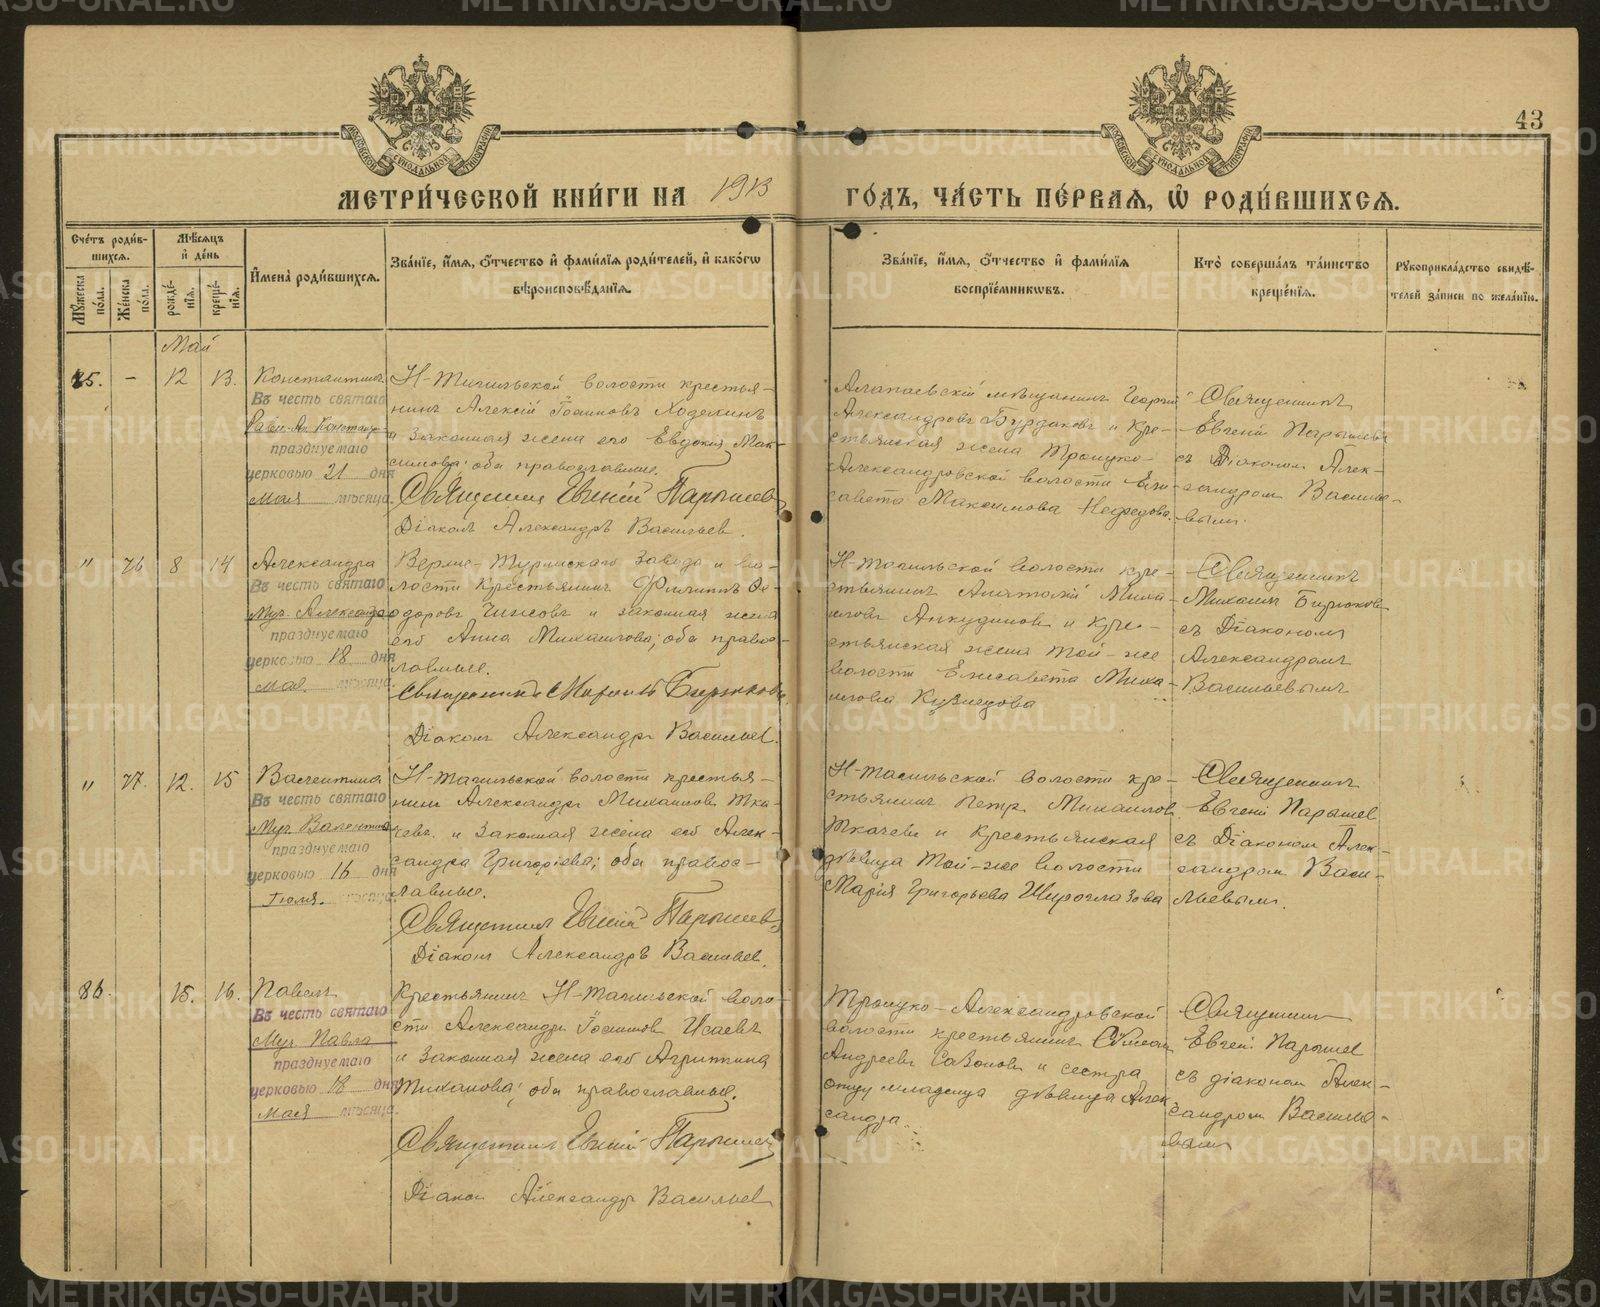 43
МЕТРИ́ЧЕСКОЙ КНИ́ГИ НА 1913 ГО́ДЪ, ЧА́СТЬ ПЕ́РВАѦ, Ѡ РОДИ́ВШИХСѦ.
Сче́тъ роди́в-
шихсѧ.
Мꙋ́жеска по́ла.
Же́нска по́ла.
Мѣ́сѧцъ и де́нь
рожде́нїѧ.
креще́нїѧ.
Имена̀ роди́вшихсѧ.
Зва́нїе, и́мѧ, ѻ́тчество и фами́лїѧ роди́телей, и како́гѡ
вѣроисповѣ́данїѧ.
Зва́нїе, и́мѧ, ѻ́тчество и фами́лїѧ
воспрїе́мникѡвъ.
Кто̀ соверша́лъ та́инство
креще́нїѧ.
Рꙋкоприкла́дство свидѣ́-
телей за́писи по жела́нїю.
Май
85. - 12 13.
Константинъ
Въ честь святаго
празднуемаго
церковью 21 дня
Мая мѣсяца.
Н-Тагильской волости крестья-
нинъ Алексѣй
и законная жена его Евдокия Мак-
симова; оба православные.
Священникъ Евгеній Парышев
Діаконъ Александръ Васильев.
Алапаевскій мѣщанинъ Георгій
Александровъ Бурдаковъ и кре-
стьянская жена Троицко-
Александровской волости Ели-
савета Максимова Нефедова.
Священникъ
Евгеній Парышевъ
съ Діаконом Алек-
сандром Василье-
вымъ.
" 76 8 14
Александра
Въ честь святаго
Муч. Александры
празднуемаго
церковью 18 дня
Мая мѣсяца.
Верхне-Туринскаго завода и во-
лости крестьянинъ Филиппъ Ѳе-
одоровъ и законная жена
его Анна Михаилова; оба право-
лавные.
Священникъ Михаилъ Бирюковъ
Діаконъ Александръ Васильев.
Н-Тагильской волости кре-
стьянинъ Анатолій Миха-
иловъ Анкудиновъ и кре-
стьянская жена той-же
волости Елисавета Миха-
илова Кузнецова
Священникъ
Михаилъ Бирюковъ
съ Діакономъ
Александромъ
Васильевымъ
" 77. 12. 15
Валентина
Въ честь святаго
Муч. Валентины
празднуемаго
церковью 16 дня
Іюля. мѣсяца.
Н-Тагильской волости крестья-
нинъ Александръ Михаиловъ Тка-
чевъ и законная жена его Алек-
сандра Григоріева; оба правос-
лавные.
Священникъ Евгеній Парышевъ
Діаконъ Александръ Васильев.
Н-Тагильской волости кре-
стьянинъ Петръ Михаиловъ
Ткачевъ и крестьянская
дѣвица той-же волости
Марія Григорьева Широглазова
Священникъ
Евгеній Парышев
съ Діаконом Алек-
сандром Васи-
льевымъ.
86. 15. 16.
Павелъ
Въ честь святаго
Муч. Павла
празднуемаго
церковью 18 дня
Мая мѣсяца.
Крестьянинъ Н-Тагильской воло-
сти Александръ Исаевъ
и законная жена его Агрипина
Тиханова; оба православные.
Священникъ Евгеній Парышев
Діакон Александръ Васильев
Троицко-Александровской
волости крестьянинъ Симеонъ
Андреевъ Сазоновъ и сестра
отцу младенца дѣвица Алек-
сандра.
Священникъ
Евгеній Парышев
съ діаконом Алек-
сандром Василье-
вым
METRIKI.GASO-URAL.RU